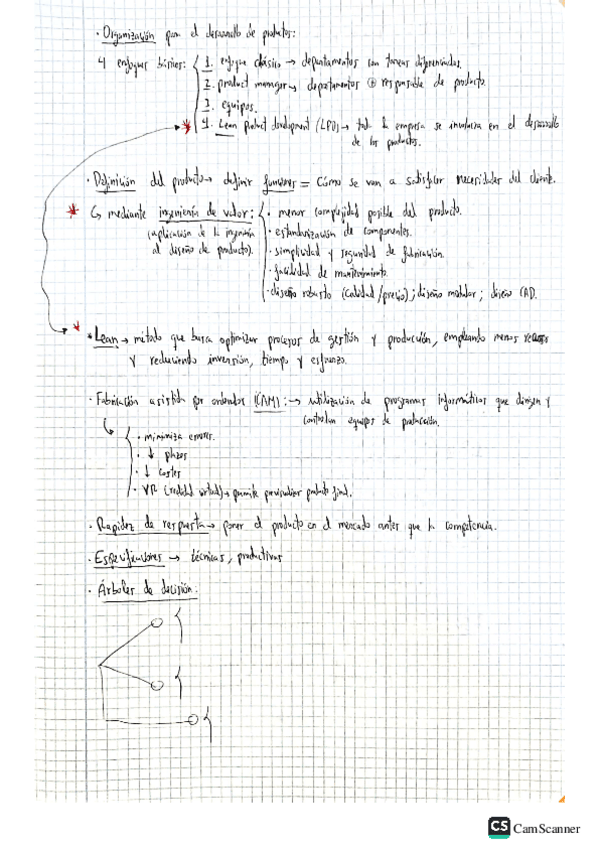 · Organización para el desarrollo de productos:
4 enfoques básicos: 1. enfoque clásico → departamentos con tareas diferenciadas.
2. product manager → departamentos ⊕ responsable de producto.
3. equipos.
* 4. Lean Product development (LPD) → toda la empresa se involucra en el desarrollo
de los productos.
· Definición del producto → definir funciones = Cómo se van a satisfacer necesidades del cliente.
* ↳ mediante ingeniería de valor: · menor complejidad posible del producto.
(aplicación de la ingeniería · estandarización de componentes.
al diseño de producto). · simplicidad y seguridad de fabricación.
· facilidad de mantenimiento.
· diseño robusto (calidad/precio); diseño modular; diseño CAD.
* · Lean → método que busca optimizar procesos de gestión y producción, empleando menos recursos
y reduciendo inversión, tiempo y esfuerzo.
· Fabricación asistida por ordenador (CAM): → utilización de programas informáticos que dirigen y
controlan equipos de producción.
· minimiza errores.
· ↓ plazos
· ↓ costes
· VR (realidad virtual) → permite previsualizar producto final.
· Rapidez de respuesta → poner el producto en el mercado antes que la competencia.
· Especificaciones → técnicas, productivas
· Árboles de decisión:
CS CamScanner